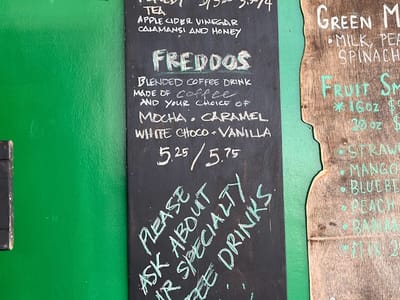 TEA
APPLE CIDER VINEGAR
CALAMANSI AND HONEY
FREDDOS
BLENDED COFFEE DRINK
MADE OF coffee
AND YOUR CHOICE OF
MOCHA · CARAMEL
WHITE CHOCO · VANILLA
5.25 / 5.75
PLEASE
ASK ABOUT
UR SPECIALTY
EE DRINKS
GREEN M
• MILK, PEA
SPINACH
FRUIT SM
* 16oz $
20 oz $
• STRAW
• MANGO
• BLUEBE
• PEACH
• BANAN